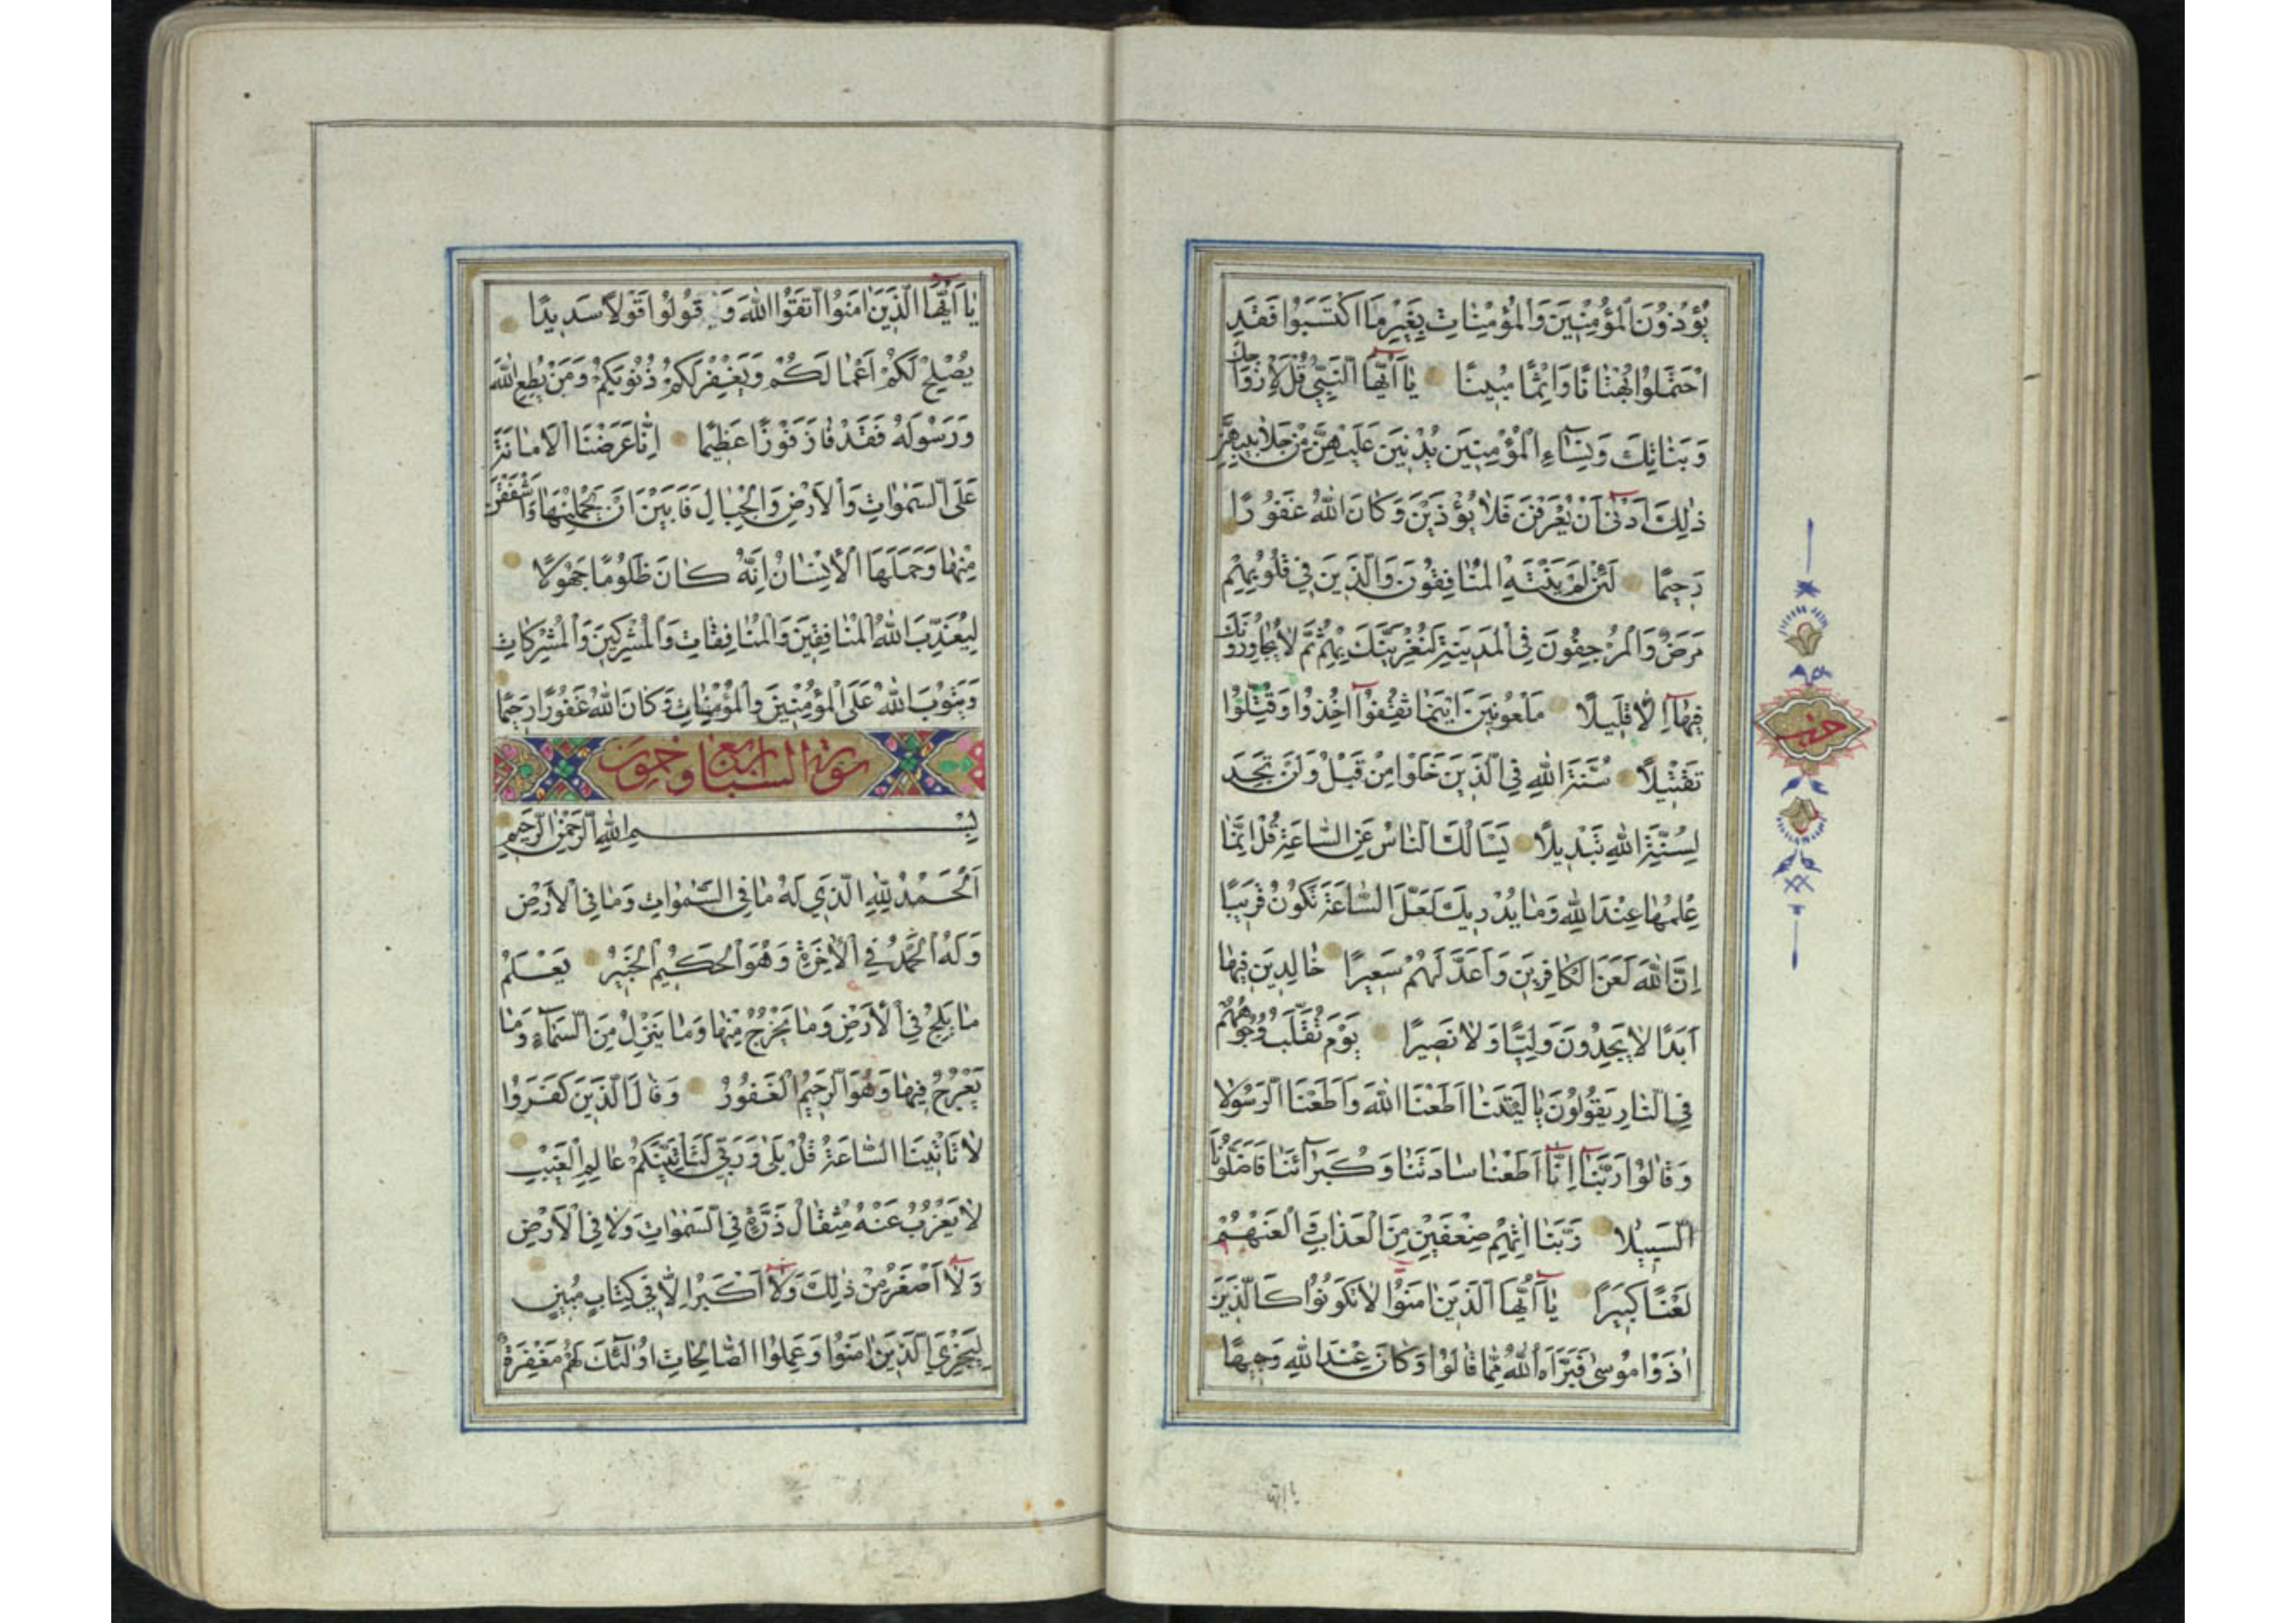 يُؤْذُونَ الْمُؤْمِنِينَ وَالْمُؤْمِنَاتِ بِغَيْرِ مَا اكْتَسَبُوا فَقَدِ
احْتَمَلُوا بُهْتَانًا وَإِثْمًا مُبِينًا يَا أَيُّهَا النَّبِيُّ قُلْ لِأَزْوَاجِكَ
وَبَنَاتِكَ وَنِسَاءِ الْمُؤْمِنِينَ يُدْنِينَ عَلَيْهِنَّ مِنْ جَلَابِيبِهِنَّ
ذٰلِكَ أَدْنٰى أَنْ يُعْرَفْنَ فَلَا يُؤْذَيْنَ وَكَانَ اللّٰهُ غَفُورًا
رَحِيمًا لَئِنْ لَمْ يَنْتَهِ الْمُنَافِقُونَ وَالَّذِينَ فِي قُلُوبِهِمْ
مَرَضٌ وَالْمُرْجِفُونَ فِي الْمَدِينَةِ لَنُغْرِيَنَّكَ بِهِمْ ثُمَّ لَا يُجَاوِرُونَكَ
فِيهَا إِلَّا قَلِيلًا مَلْعُونِينَ أَيْنَمَا ثُقِفُوا أُخِذُوا وَقُتِّلُوا
تَقْتِيلًا سُنَّةَ اللّٰهِ فِي الَّذِينَ خَلَوْا مِنْ قَبْلُ وَلَنْ تَجِدَ
لِسُنَّةِ اللّٰهِ تَبْدِيلًا يَسْأَلُكَ النَّاسُ عَنِ السَّاعَةِ قُلْ إِنَّمَا
عِلْمُهَا عِنْدَ اللّٰهِ وَمَا يُدْرِيكَ لَعَلَّ السَّاعَةَ تَكُونُ قَرِيبًا
إِنَّ اللّٰهَ لَعَنَ الْكَافِرِينَ وَأَعَدَّ لَهُمْ سَعِيرًا خَالِدِينَ فِيهَا
أَبَدًا لَا يَجِدُونَ وَلِيًّا وَلَا نَصِيرًا يَوْمَ تُقَلَّبُ وُجُوهُهُمْ
فِي النَّارِ يَقُولُونَ يَا لَيْتَنَا أَطَعْنَا اللّٰهَ وَأَطَعْنَا الرَّسُولَا
وَقَالُوا رَبَّنَا إِنَّا أَطَعْنَا سَادَتَنَا وَكُبَرَاءَنَا فَأَضَلُّونَا
السَّبِيلَا رَبَّنَا آتِهِمْ ضِعْفَيْنِ مِنَ الْعَذَابِ وَالْعَنْهُمْ
لَعْنًا كَبِيرًا يَا أَيُّهَا الَّذِينَ آمَنُوا لَا تَكُونُوا كَالَّذِينَ
آذَوْا مُوسٰى فَبَرَّأَهُ اللّٰهُ مِمَّا قَالُوا وَكَانَ عِنْدَ اللّٰهِ وَجِيهًا
حزب
يا ايها
يَا أَيُّهَا الَّذِينَ آمَنُوا اتَّقُوا اللّٰهَ وَقُولُوا قَوْلًا سَدِيدًا
يُصْلِحْ لَكُمْ أَعْمَالَكُمْ وَيَغْفِرْ لَكُمْ ذُنُوبَكُمْ وَمَنْ يُطِعِ اللّٰهَ
وَرَسُولَهُ فَقَدْ فَازَ فَوْزًا عَظِيمًا إِنَّا عَرَضْنَا الْأَمَانَةَ
عَلَى السَّمٰوَاتِ وَالْأَرْضِ وَالْجِبَالِ فَأَبَيْنَ أَنْ يَحْمِلْنَهَا وَأَشْفَقْنَ
مِنْهَا وَحَمَلَهَا الْإِنْسَانُ إِنَّهُ كَانَ ظَلُومًا جَهُولًا
لِيُعَذِّبَ اللّٰهُ الْمُنَافِقِينَ وَالْمُنَافِقَاتِ وَالْمُشْرِكِينَ وَالْمُشْرِكَاتِ
وَيَتُوبَ اللّٰهُ عَلَى الْمُؤْمِنِينَ وَالْمُؤْمِنَاتِ وَكَانَ اللّٰهُ غَفُورًا رَحِيمًا
سورة السبا اربع وخمسون
بِسْمِ اللّٰهِ الرَّحْمٰنِ الرَّحِيمِ
اَلْحَمْدُ لِلّٰهِ الَّذِي لَهُ مَا فِي السَّمٰوَاتِ وَمَا فِي الْأَرْضِ
وَلَهُ الْحَمْدُ فِي الْآخِرَةِ وَهُوَ الْحَكِيمُ الْخَبِيرُ يَعْلَمُ
مَا يَلِجُ فِي الْأَرْضِ وَمَا يَخْرُجُ مِنْهَا وَمَا يَنْزِلُ مِنَ السَّمَاءِ وَمَا
يَعْرُجُ فِيهَا وَهُوَ الرَّحِيمُ الْغَفُورُ وَقَالَ الَّذِينَ كَفَرُوا
لَا تَأْتِينَا السَّاعَةُ قُلْ بَلٰى وَرَبِّي لَتَأْتِيَنَّكُمْ عَالِمِ الْغَيْبِ
لَا يَعْزُبُ عَنْهُ مِثْقَالُ ذَرَّةٍ فِي السَّمٰوَاتِ وَلَا فِي الْأَرْضِ
وَلَا أَصْغَرُ مِنْ ذٰلِكَ وَلَا أَكْبَرُ إِلَّا فِي كِتَابٍ مُبِينٍ
لِيَجْزِيَ الَّذِينَ آمَنُوا وَعَمِلُوا الصَّالِحَاتِ أُولٰئِكَ لَهُمْ مَغْفِرَةٌ